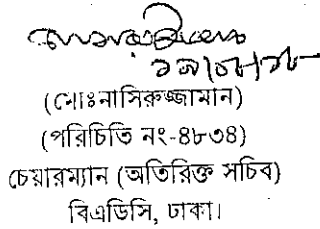 (মোঃনাসিরুজ্জামান)
(পরিচিতি নং-৪৮৩৪)
চেয়ারম্যান (অতিরিক্ত সচিব)
বিএডিসি, ঢাকা।